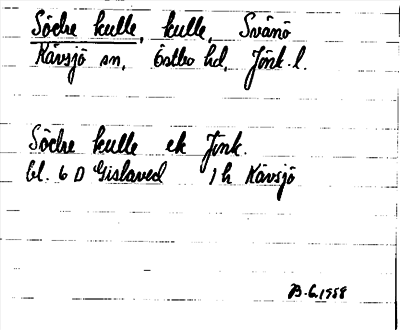 Södre kulle, kulle, Svänö
Kävsjö sn, Östbo hd, Jönk. l.
Södre kulle ek Jönk.
bl. 6 D Gislaved 1 h Kävsjö
B.G. 1958